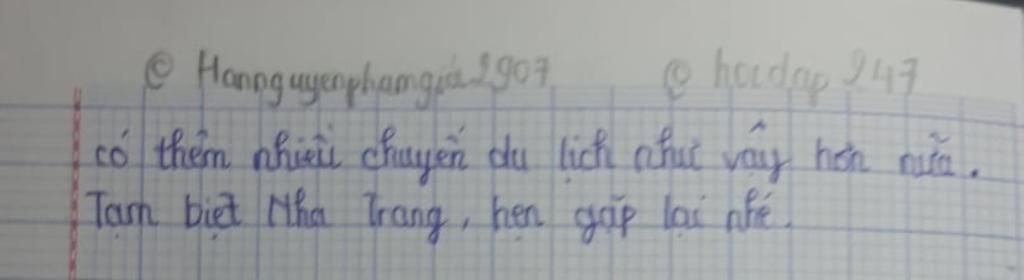 © Hannguyenphamgia2907 © hoidap247
có thêm nhiều chuyến du lịch như vậy hơn nữa.
Tạm biệt Nha Trang, hẹn gặp lại nhé.